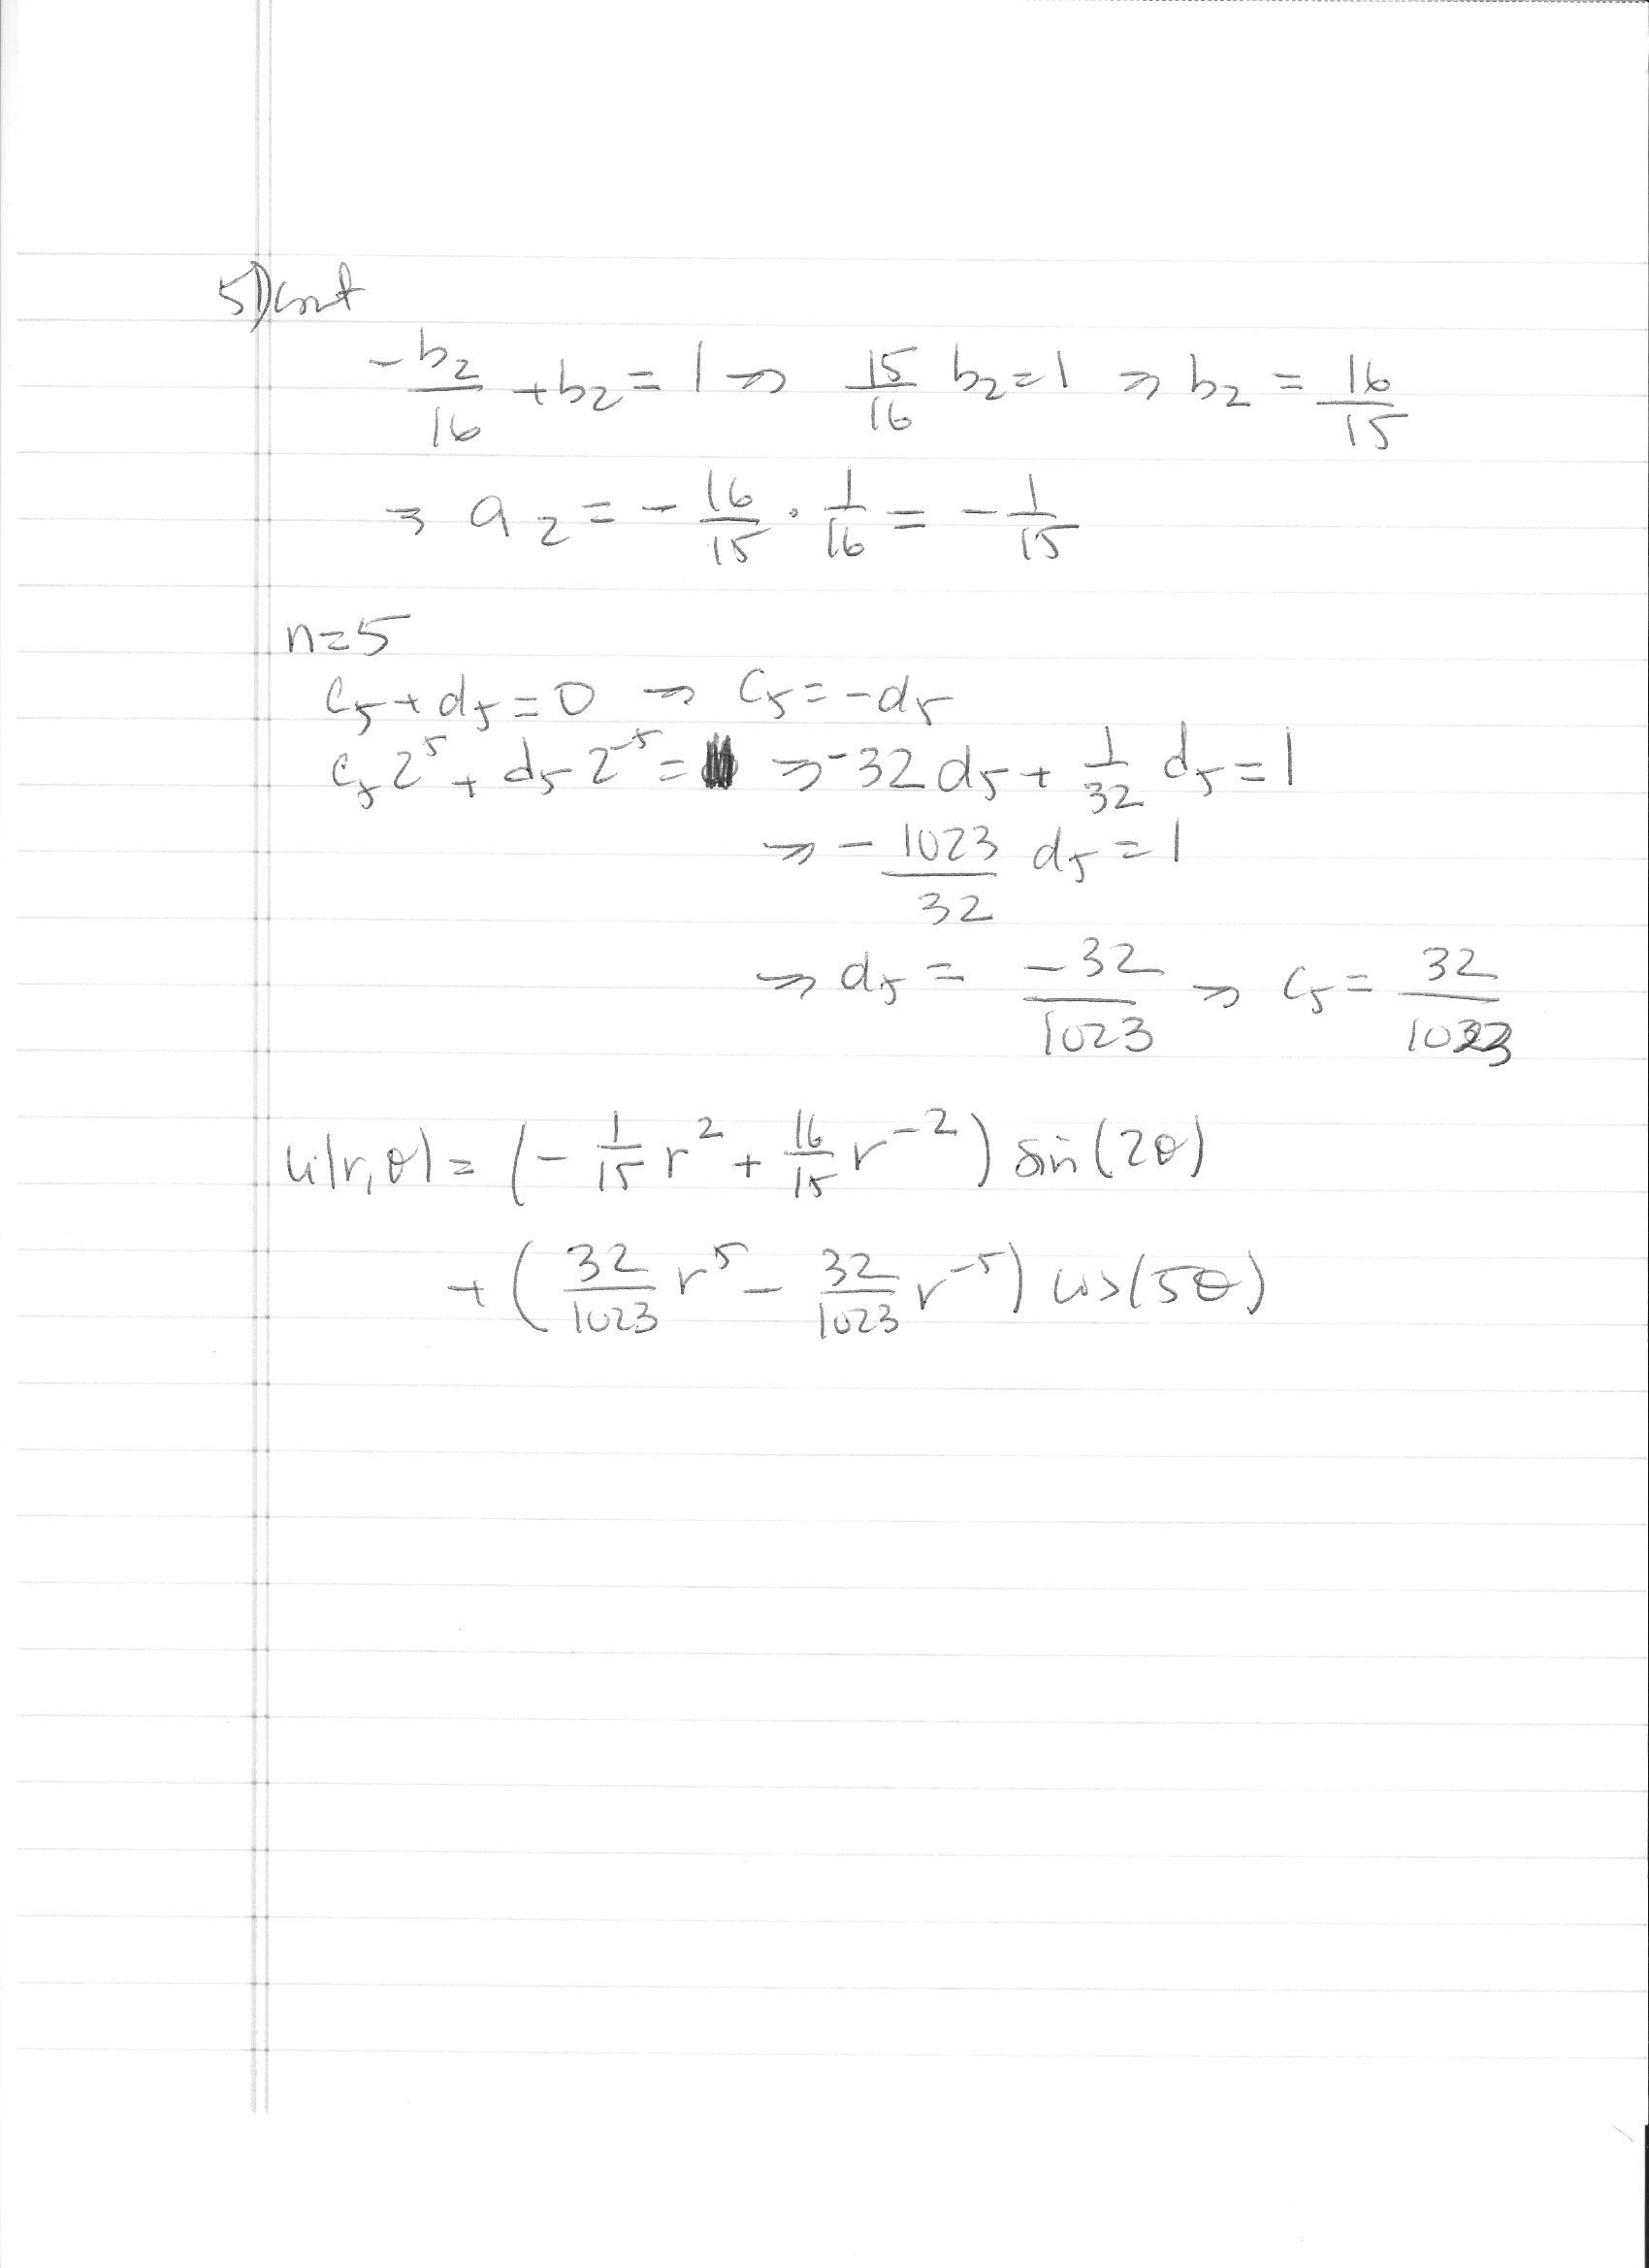 5) cont
-b₂/16 + b₂ = 1 ⇒ 15/16 b₂ = 1 ⇒ b₂ = 16/15
⇒ a₂ = - 16/15 · 1/16 = - 1/15
n=5
c₅ + d₅ = 0 ⇒ c₅ = -d₅
c₅ 2⁵ + d₅ 2⁻⁵ = ⇒ -32 d₅ + 1/32 d₅ = 1
⇒ - 1023/32 d₅ = 1
⇒ d₅ = -32/1023 ⇒ c₅ = 32/1023
u(r,θ) = (- 1/15 r² + 16/15 r⁻²) sin(2θ)
+ (32/1023 r⁵ - 32/1023 r⁻⁵) cos(5θ)